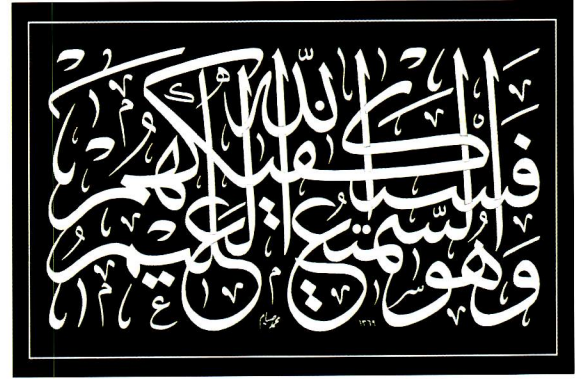 فسيكفيكهم الله
وهو السميع العليم
١٣٦٩